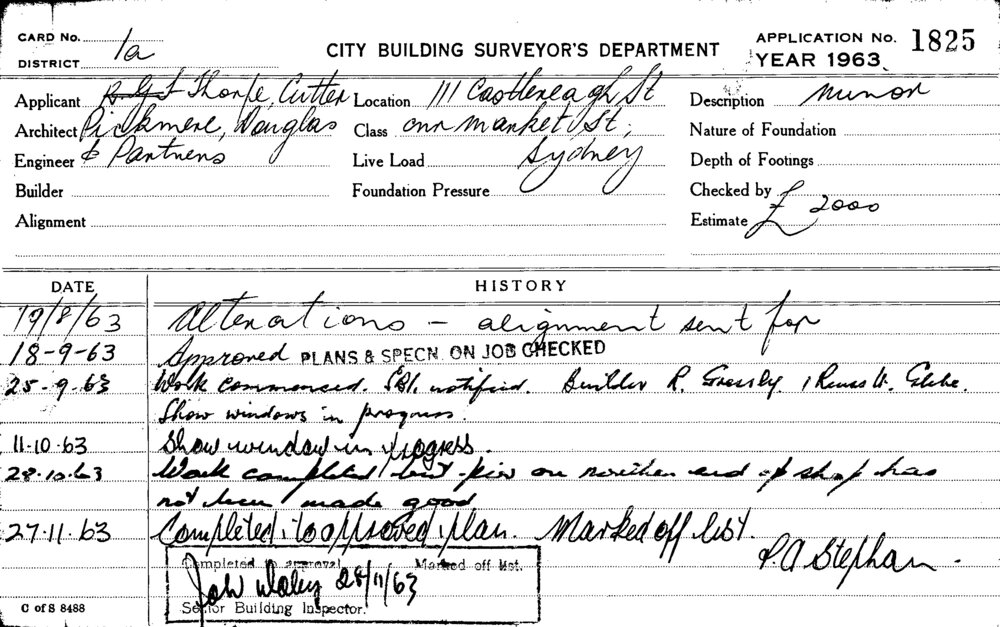 CARD No.
DISTRICT 1a
CITY BUILDING SURVEYOR'S DEPARTMENT
APPLICATION No. 1825
YEAR 1963
Applicant Thorpe, Cutter
Architect Pickmere, Douglas
Engineer & Partners
Builder
Alignment
Location 111 Castlereagh St
Class cnr market St,
Live Load Sydney
Foundation Pressure
Description minor
Nature of Foundation
Depth of Footings
Checked by
Estimate £ 2000
DATE HISTORY
19/8/63 Alterations – alignment sent for
18-9-63 Approved PLANS & SPECN. ON JOB CHECKED
25-9-63 Work commenced. notified. Builder R. Glebe.
Show windows in progress.
11-10-63 Show window in progress.
28-10-63 Work completed but pier on northern end of shop has
not been made good
27-11-63 Completed to approved plan. Marked off list.
P.A Stephan.
Completed to approval Marked off list.
John 28/11/63
Senior Building Inspector.
C of S 8488